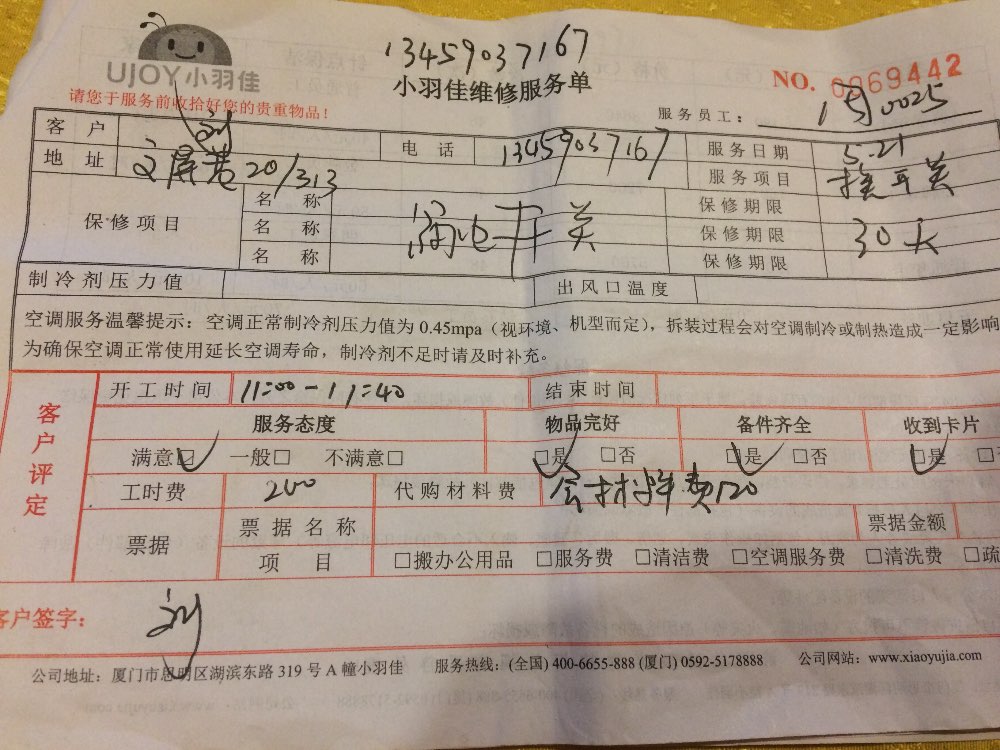 13459037167
UJOY小羽佳
小羽佳维修服务单
NO. 0069442
请您于服务前收拾好您的贵重物品！
服务员工： 0025
客 户 刘 电 话 13459037167 服务日期 5.21
地 址 文屏巷20/313 服务项目 换开关
保修项目 名 称 漏电开关 保修期限 30天
名 称 保修期限
名 称 保修期限
制冷剂压力值 出风口温度
空调服务温馨提示：空调正常制冷剂压力值为 0.45mpa（视环境、机型而定），拆装过程会对空调制冷或制热造成一定影响
为确保空调正常使用延长空调寿命，制冷剂不足时请及时补充。
客户评定
开工时间 11:00-11:40 结束时间
服务态度 物品完好 备件齐全 收到卡片
满意☑ 一般□ 不满意□ ☑是 □否 ☑是 □否 ☑是 □
工时费 200 代购材料费 含材料费120
票据 票据名称 票据金额
项 目 □搬办公用品 □服务费 □清洁费 □空调服务费 □清洗费 □疏
客户签字： 刘
公司地址：厦门市思明区湖滨东路 319 号 A 幢小羽佳 服务热线：(全国) 400-6655-888 (厦门) 0592-5178888 公司网站：www.xiaoyujia.com